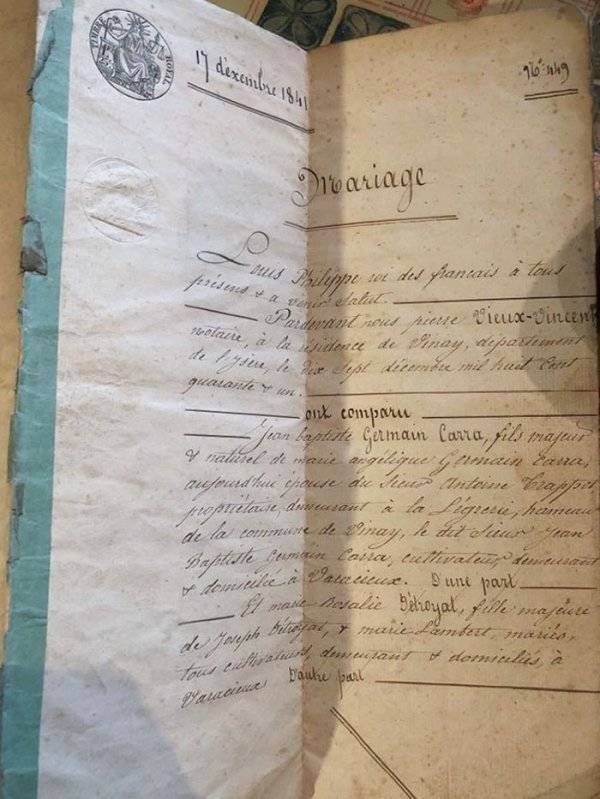 TIMBRE ROYAL
17 décembre 1841
No. 449
Mariage
Louis Philippe roi des français à tous
présens & a venir Salut.
Pardevant nous pierre Vieux-Vincent
notaire, à la résidence de Vinay, département
de l'ysère, le dix Sept décembre mil huit Cent
quarante & un.
ont comparu
Jean baptiste Germain Carra, fils majeur
& naturel de marie angélique Germain Carra,
aujourd'hui épouse du Sieur Antoine Trappet
propriétaire demeurant à la Légrerie, hameau
de la commune de Vinay, le dit Sieur Jean
Baptiste Germain Carra, cultivateur demeurant
& domicilié à Varacieux. D'une part
Et marie Rosalie Détroyat, fille majeure
de Joseph Détroyat, & marie Lambert, mariés,
tous cultivateurs, demeurant & domiciliés, à
Varacieux D'autre part